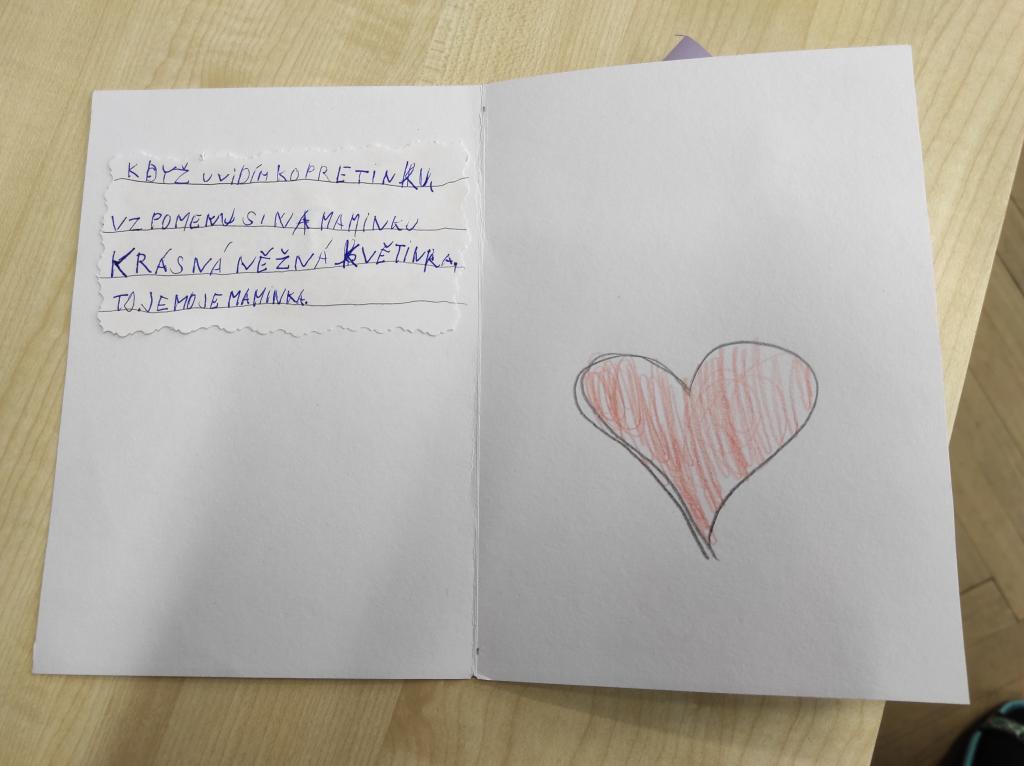 KDYŽ UVIDÍM KOPRETINKU,
VZPOMENU SI NA MAMINKU
KRÁSNÁ NĚŽNÁ KVĚTINKA,
TO JE MOJE MAMINKA.